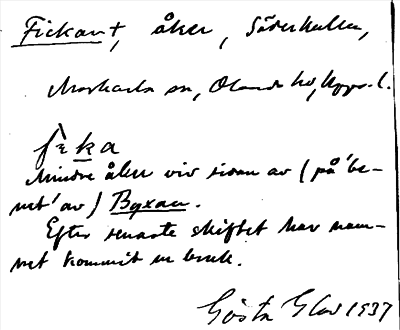 Fickan +, åker, Söderkulla,
Morkarla sn, Olands hd, Upps. l.
fìka
Mindre åker vid sidan av (på 'be-
net' av) Byxan.
Efter senaste skiftet har nam-
net kommit ur bruk.
Gösta Glad 1937